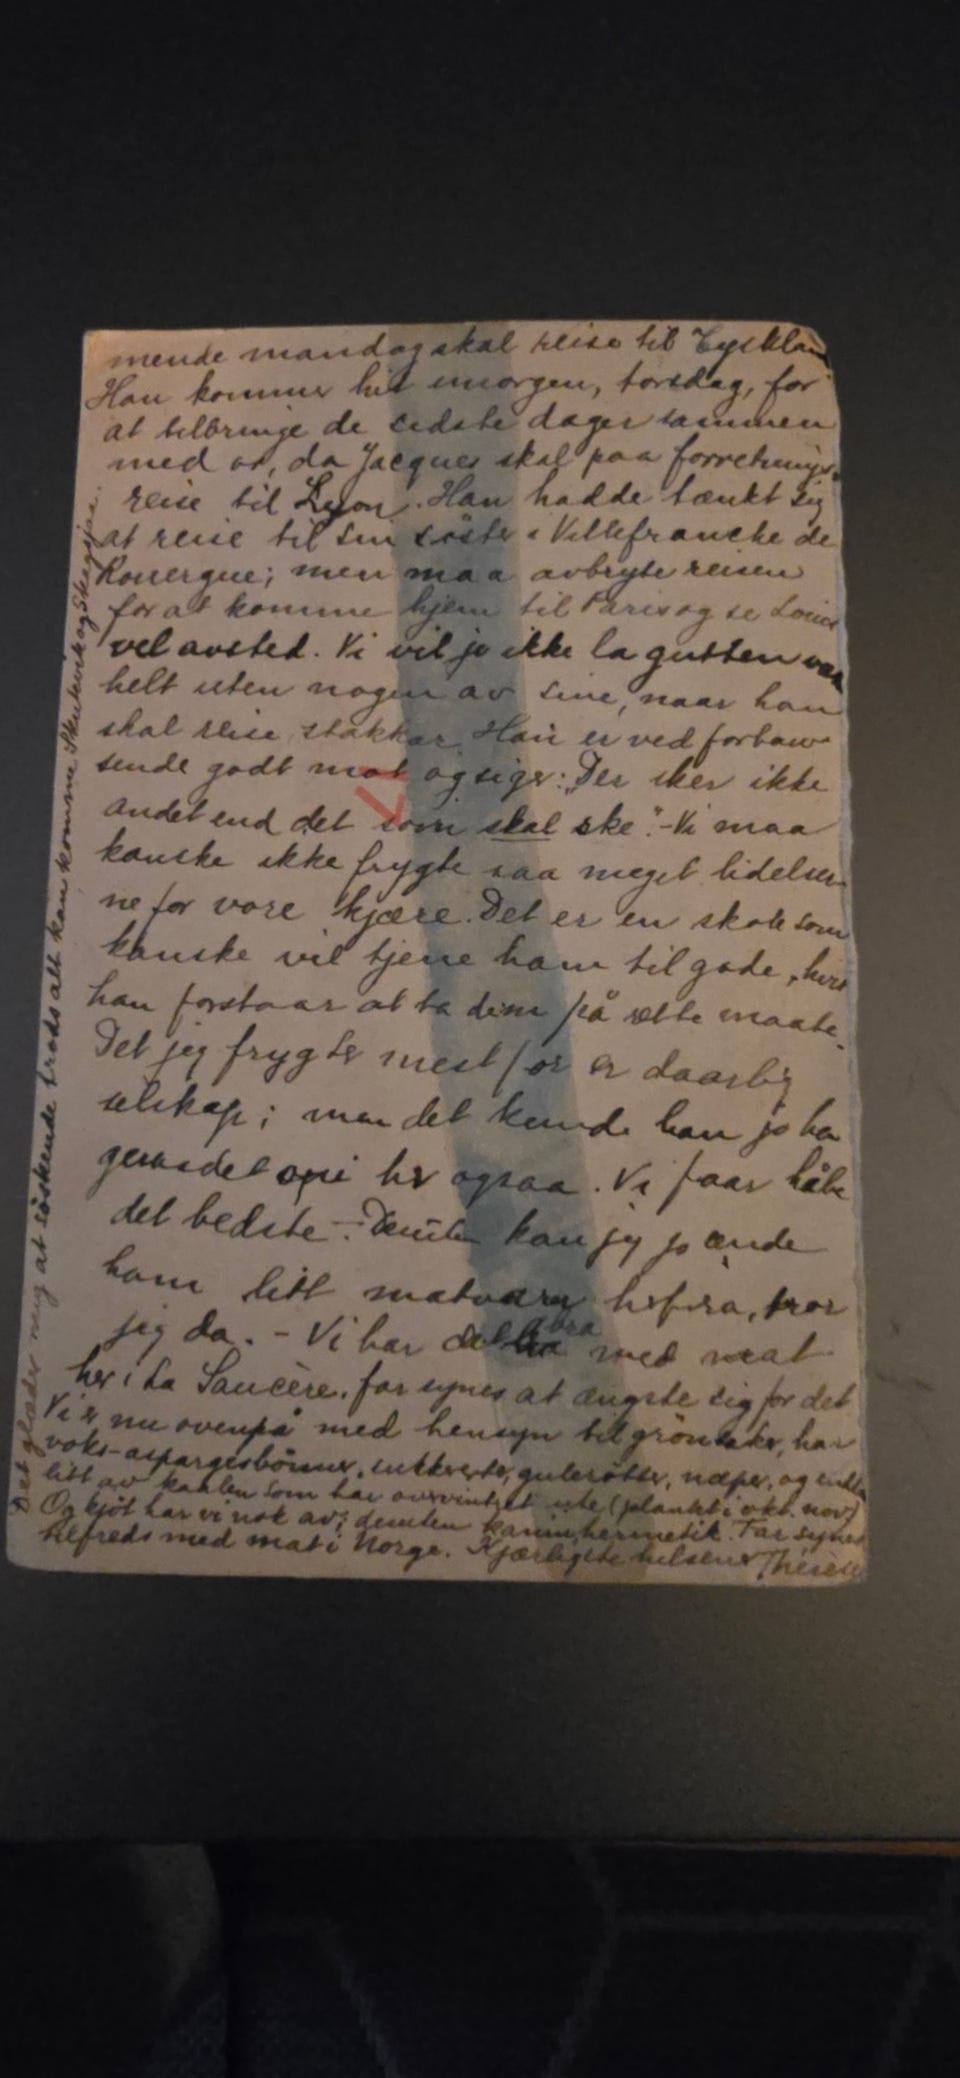 mende mandag skal reise til Tyskland
Han kommer hit imorgen, torsdag, for
at tilbringe de sidste dager sammen
med os, da Jacques skal paa forretnings-
reise til Lyon. Han hadde tænkt sig
at reise til sin söster i Villefranche de
Rouergue; men maa avbryte reisen
for at komme hjem til Paris og se Louis
vel avsted. Vi vil jo ikke la gutten være
helt uten nogen av sine, naar han
skal reise, stakkar. Han er ved forbau-
sende godt mot og siger: "Der sker ikke
andet end det som skal ske". - Vi maa
kanske ikke frygte saa meget lidelser-
ne for vore kjære. Det er en skole som
kanske vil tjene ham til gode, hvis
han forstaar at ta dem på rette maate.
Det jeg frygter mest for er daarlig
selskap; men det kunde han jo ha
geraadet opi her ogsaa. Vi faar håbe
det bedste. - Desuten kan jeg jo sende
ham litt matvarer herfra, tror
jeg da. - Vi har det bra med mat
her i La Saucère, far synes at ængste sig for det
Vi er nu ovenpå med hensyn til grönsaker, har
voks-aspargesbönner, sukkererter, guleröter, næper, og endda
litt av kaalen som har overvintret ute (plantet i okt. nov)
Og kjöt har vi nok av; desuten kaninhermetik. Far synes
tilfreds med mat i Norge. Kjærligste hilsener Thérèse
Det glæder mig at söskende trods alt kan komme Skulevik og Skogsjaa.